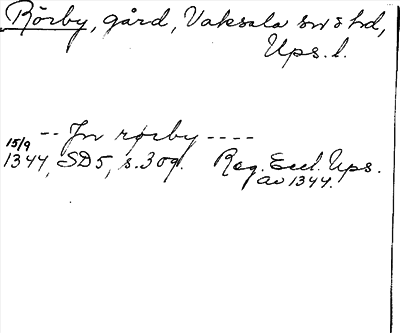 Rörby, gård, Vaksala sn o hd,
Ups. l.
-- Jn rørby ----
15/9
1344, SD 5, s. 309. Reg. Eccl. Ups.
av 1344.